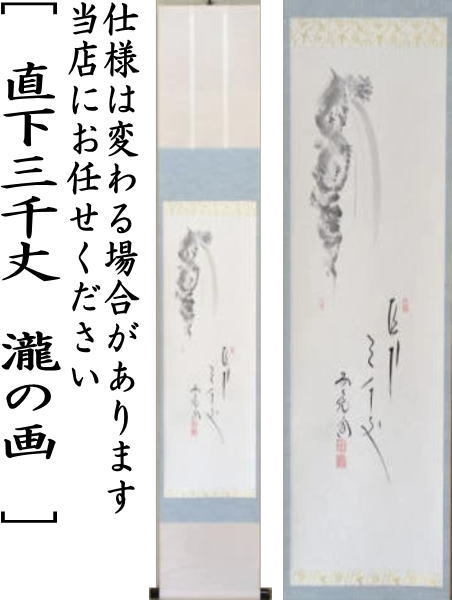 仕様は変わる場合があります
当店にお任せください
［直下三千丈　瀧の画］
直下
三千丈